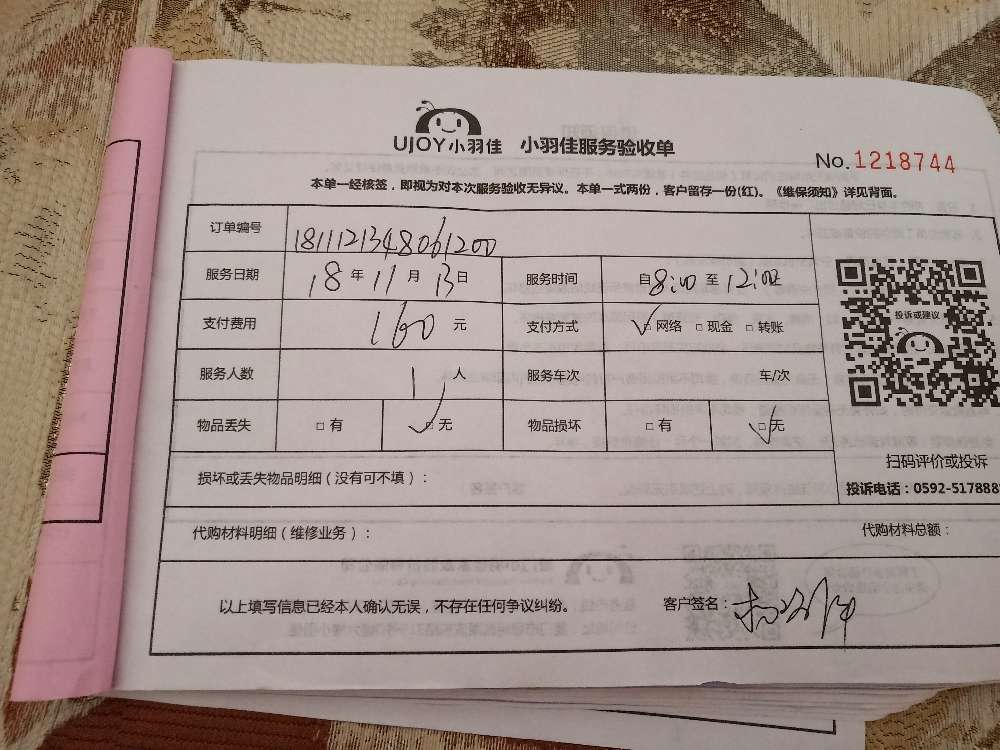 UJOY小羽佳 小羽佳服务验收单
No. 1218744
本单一经核签，即视为对本次服务验收无异议。本单一式两份，客户留存一份(红)。《维保须知》详见背面。
订单编号 181112134806 1200
服务日期 18 年 11 月 13 日 服务时间 自 8:00 至 12:00
支付费用 160 元 支付方式 ✓□ 网络 □ 现金 □ 转账
投诉或建议
服务人数 1 人 服务车次 车/次
物品丢失 □ 有 ✓□ 无 物品损坏 □ 有 ✓□ 无
扫码评价或投诉
损坏或丢失物品明细（没有可不填）：
投诉电话：0592-517888
代购材料明细（维修业务）： 代购材料总额：
以上填写信息已经本人确认无误，不存在任何争议纠纷。 客户签名：